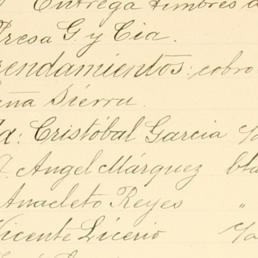 Entrega timbres a
resa G y Cia.
rendamientos: cobro
ña Sierra.
a: Cristóbal Garcia c/a
J. Angel Márquez
Anacleto Reyes "
Vicente Licerio c/a